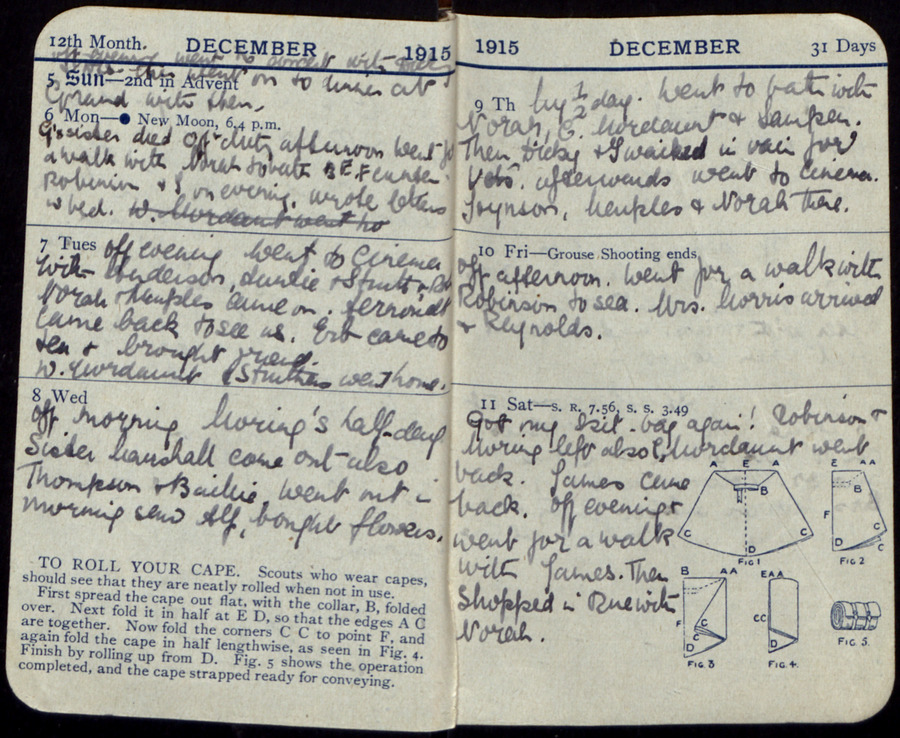 12th Month. DECEMBER 1915
off evening went to concert with
this went on to dinner at
5 Sun—2nd in Advent
Grand with them.
6 Mon—● New Moon, 6.4 p.m.
G's sister died Off duty afternoon went for
a walk with Norah to bats B.E.F. canteen
Robinson & I on evening, wrote letters
in bed. W. Mordaunt went to
7 Tues off evening went to Cinema
with Anderson, Auntie & Struthers, but
Norah & Meuples came on.
came back to see us. Erb came to
tea & brought friend.
W. Mordaunt & Struthers went home.
8 Wed
off morning Moring's half-day
Sister Marshall came out also
Thompson & Bailie, went out in
morning saw Alf, bought flowers.
TO ROLL YOUR CAPE. Scouts who wear capes,
should see that they are neatly rolled when not in use.
First spread the cape out flat, with the collar, B, folded
over. Next fold it in half at E D, so that the edges A C
are together. Now fold the corners C C to point F, and
again fold the cape in half lengthwise, as seen in Fig. 4.
Finish by rolling up from D. Fig. 5 shows the operation
completed, and the cape strapped ready for conveying.
1915 DECEMBER 31 Days
9 Th My ½ day. Went to bath with
Norah, E. Mordaunt & Sampson.
Then Dicky & I waited in vain for
afterwards went to Cinema.
Joynson, Meuples & Norah there.
10 Fri—Grouse Shooting ends
off afternoon. Went for a walk with
Robinson to sea. Mrs. Morris arrived
& Reynolds.
11 Sat—S. R. 7.56, S. S. 3.49
Got my kit-bag again! Robinson &
Moring left also E. Mordaunt went
back. James came
back. Off evening &
went for a walk
with James. Then
Shopped in Rue with
Norah.
A E A
B
C C
D
FIG 1
E A A
B
F
C
D C
FIG 2
B A A
F
C
C
D
FIG 3
E A A
CC
D
FIG. 4.
FIG 5.